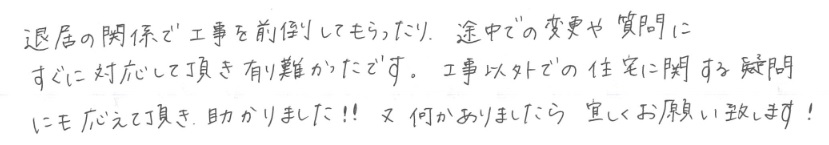 退居の関係で工事を前倒してもらったり、途中での変更や質問に
すぐに対応して頂き有り難かったです。工事以外での住宅に関する疑問
にも応えて頂き、助かりました!! 又何かありましたら宜しくお願い致します!